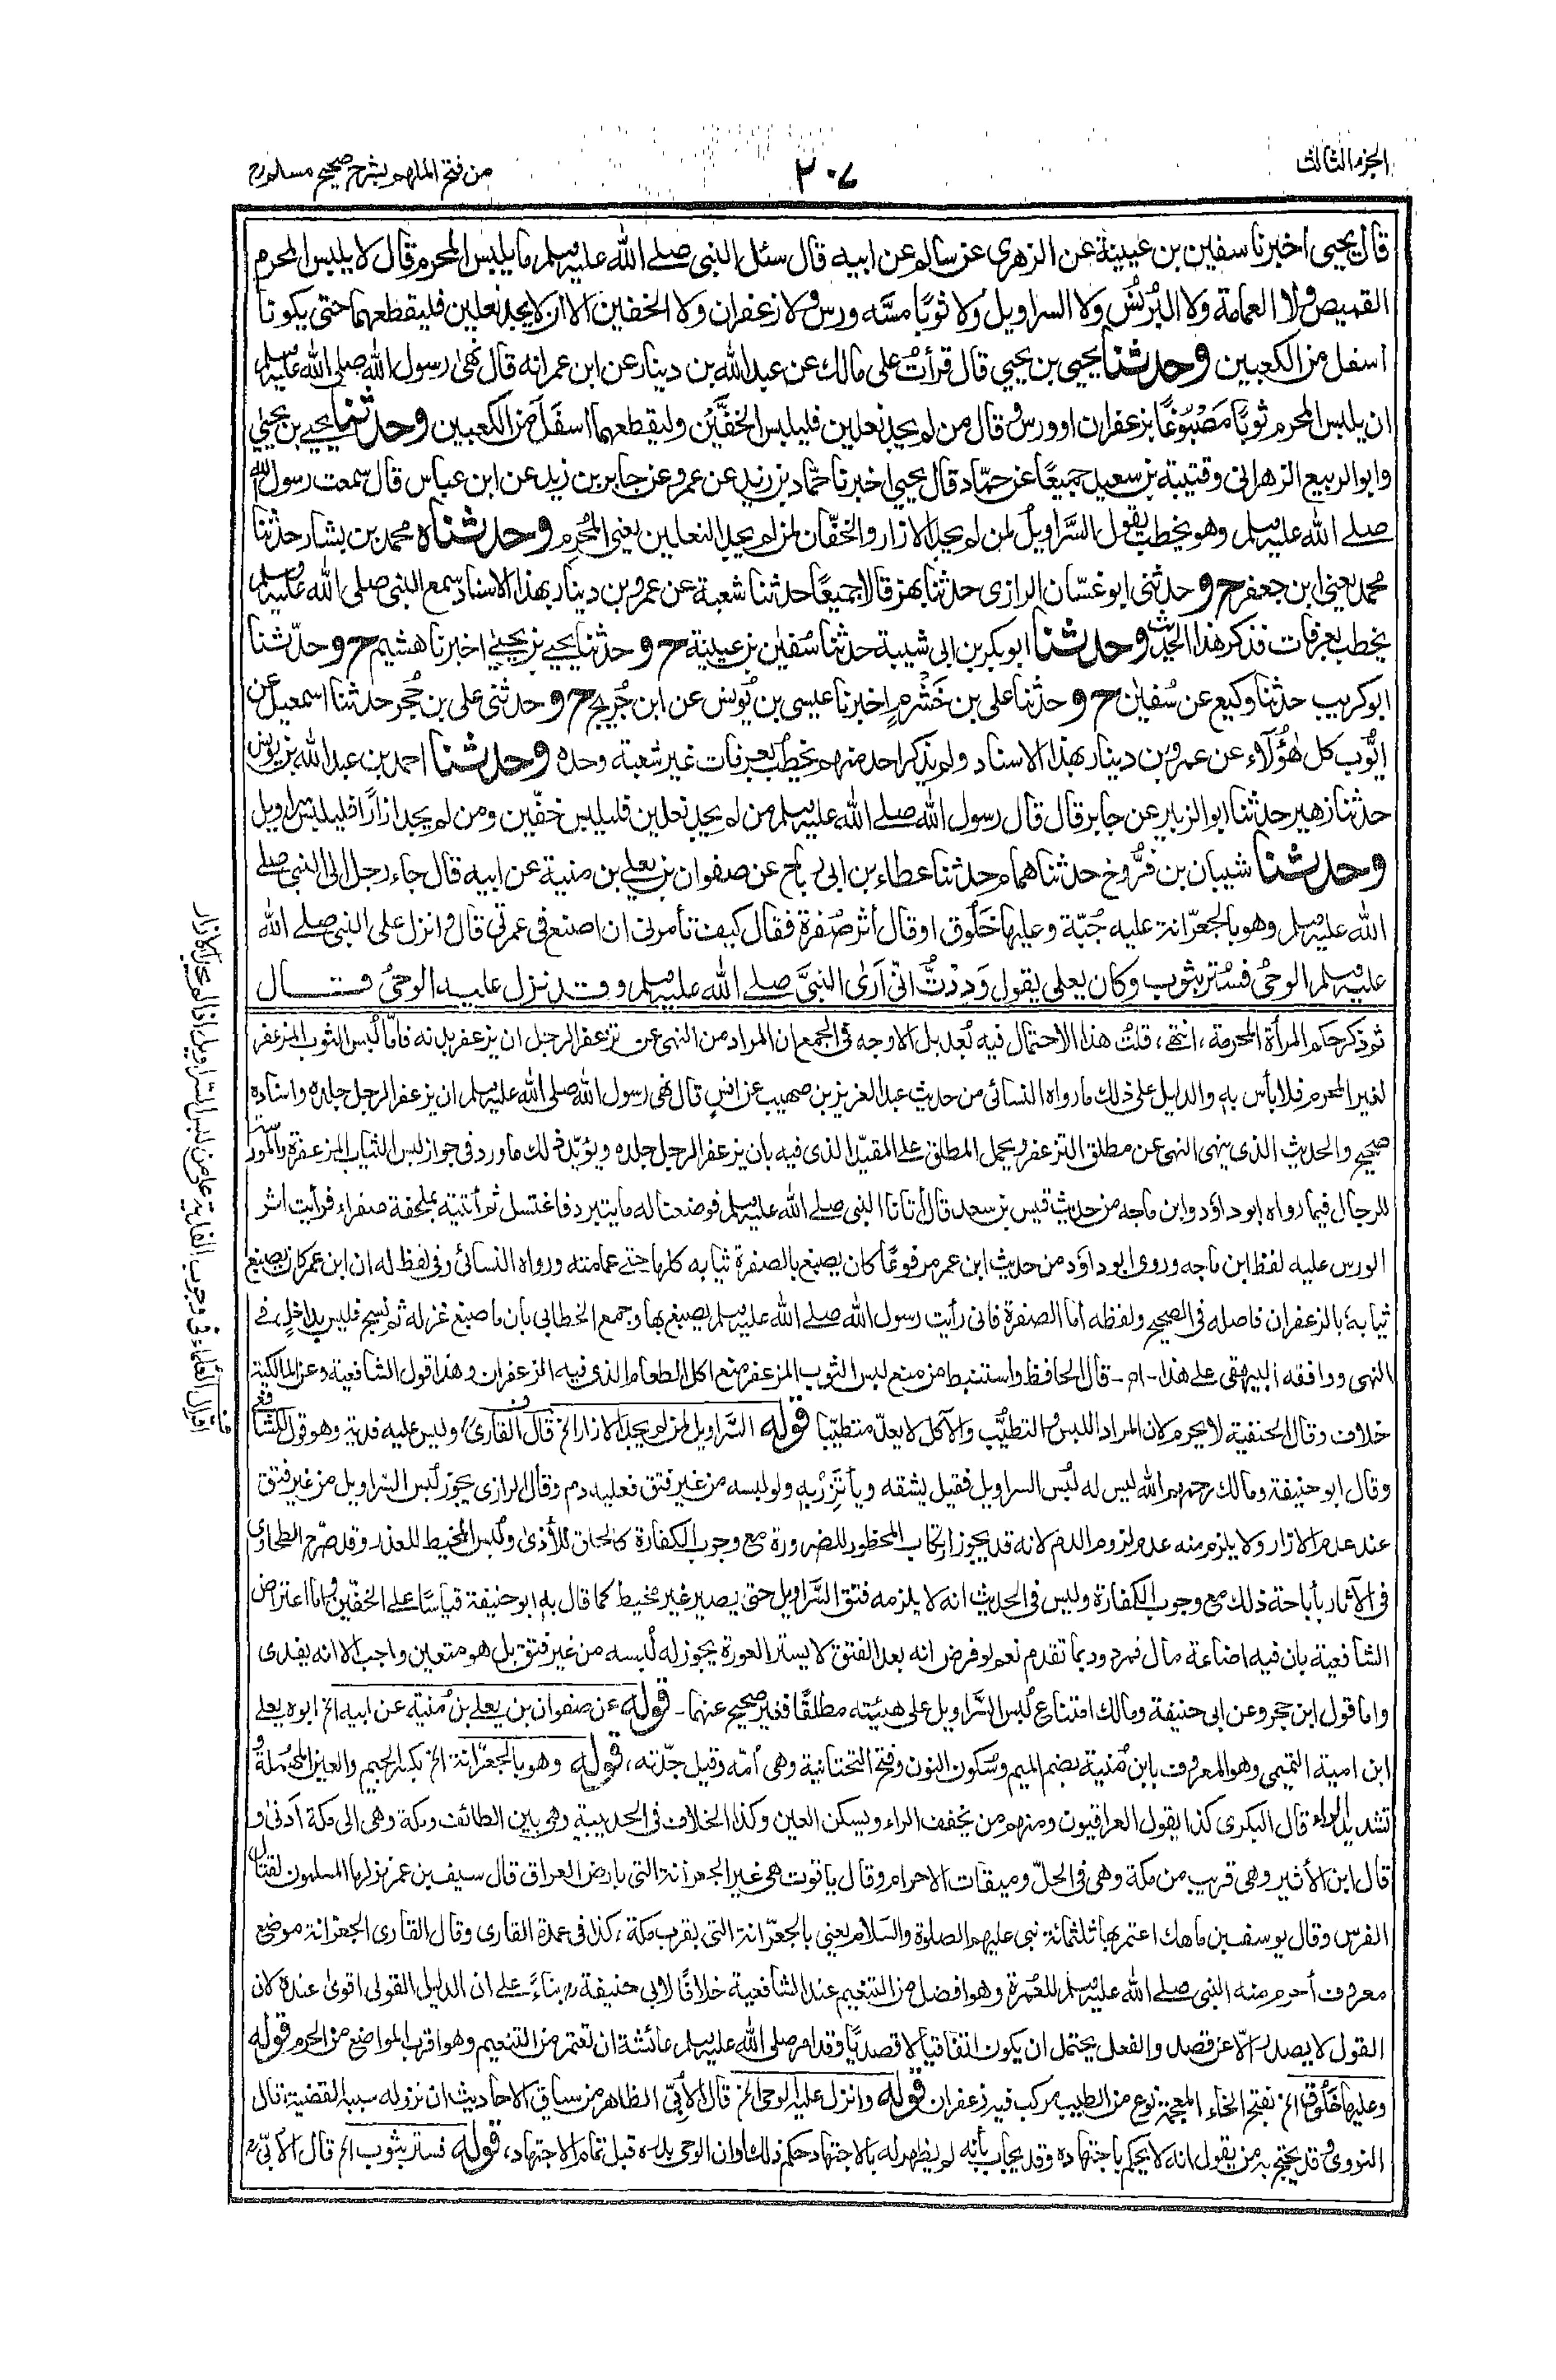 الجزء الثالث
٢٠٧
من فتح الملهم بشرح صحيح مسلم
قال يحيى اخبرنا سفين بن عيينة عن الزهرى عن سالم عن ابيه قال سئل النبى صلے الله عليه وسلم ما يلبس المحرم قال لا يلبس المحرم
القميص ولا العمامة ولا البُرْنُس ولا السراويل ولا ثوبًا مسَّه ورس ولا زعفران ولا الخفين الا ان لا يجد نعلين فليقطعهما حتى يكونا
اسفل من الكعبين وحدثنا يحيى بن يحيى قال قرأتُ على مالك عن عبد الله بن دينار عن ابن عمر انه قال نهىٰ رسول الله صلى الله عليه وسلم
ان يلبس المحرم ثوبًا مَصْبُوغًا بزعفران او ورس وقال من لم يجد نعلين فليلبس الخفَّيْن وليقطعهما اسفَلَ من الكعبين وحدثنا يحيے بن يحيىٰ
وابو الربيع الزهرانى وقتيبة بن سعيد جميعًا عن حمّاد قال يحيى اخبرنا حمّاد بن زيد عن عمرو عن جابر بن زيد عن ابن عباس قال سمعت رسول الله
صلے الله عليه وسلم وهو يخطب يقول السَّراويلُ لمن لم يجد الازار والخفّان لمن لم يجد النعلين يعنى المُحْرِم وحدثناه محمد بن بشار حدثنا
محمد يعنى ابن جعفر ح وحدثنى ابو غسّان الرازى حدثنا بهز قالا جميعًا حدثنا شعبة عن عمرو بن دينار بهذا الاسناد سمع النبى صلى الله عليه وسلم
يخطب بعرفات فذكر هذا الحديث وحدثنا ابو بكر بن ابى شيبة حدثنا سُفين بن عيينة ح وحدثنا يحيے بن يحيىٰ اخبرنا هشيم ح وحدّثنا
ابو كريب حدثنا وكيع عن سُفيٰن ح وحدثنا على بن خَشْرمٍ اخبرنا عيسى بن يُونس عن ابن جُرَيج ح وحدثنى على بن حُجر حدثنا اسمعيل عن
ايّوب كل هٰؤُلآء عن عمرو بن دينار بهذا الاسناد ولم يذكر احد منهم يخطُب بعرفات غير شعبة وحده وحدثنا احمد بن عبد الله بن يونس
حدثنا زهير حدثنا ابو الزبير عن جابر قال قال رسول الله صلے الله عليه وسلم من لم يجد نعلين فليلبس خفّين ومن لم يجد ازارًا فليلبس سراويل
وحدثنا شيبان بن فرُّوخ حدثنا همام حدثنا عطاء بن ابى رباح عن صفوان بن يعلے بن منية عن ابيه قال جاء رجل الى النبى صلے
الله عليه وسلم وهو بالجعرّانة عليه جُبّة وعليها خَلُوق او قال أثر صُفرة فقال كيف تأمرنى ان اصنع فى عمرتى قال وانزل على النبى صلے الله
عليه وسلم الوحىُ فسُتر بثوب وكان يعلى يقول وَدِدْتُ انّى اَرَى النبىَّ صلے الله عليه وسلم وقد نزل عليه الوحىُ قــال
ثم ذكر حكم المرأة المحرمة، انتهى، قلتُ هذا الاحتمال فيه بُعد بل الاوجه فى الجمع ان المراد من النهى عن تزعفر الرجل ان يزعفر بدنه فامّا لُبس الثوب المزعفر
لغير المحرم فلا بأس به والدليل على ذلك ما رواه النسائى من حديث عبد العزيز بن صهيب عن انس قال نهى رسول الله صلى الله عليه وسلم ان يزعفر الرجل جلده واسناده
صحيح والحديث الذى ينهى النهى عن مطلق التزعفر يحمل المطلق على المقيّد الذى فيه بأن يزعفر الرجل جلده ويؤيّد ذلك ما ورد فى جواز لبس الثياب المزعفرة والمورّسة
للرجال فيما رواه ابو داؤد وابن ماجه من حديث قيس بن سعد قال أتانا النبى صلے الله عليه وسلم فوضعنا له ما يتبرد فاغتسل ثم أتيته بملحفة صفراء فرأيت اثر
الورس عليه لفظ ابن ماجه وروى ابو داؤد من حديث ابن عمر مرفوعًا كان يصبغ بالصفرة ثيابه كلها حتے عمامته ورواه النسائى وفى لفظ له ان ابن عمر كان يصبغ
ثيابه بالزعفران فاصله فى الصحيح ولفظه أما الصفرة فانى رأيت رسول الله صلے الله عليه وسلم يصبغ بها وجمع الخطابى بأن ما صبغ غزله ثم نسج فليس بداخلٍ فے
النهى ووافقه البيهقى على هذا - اھ - قال الحافظ واستنبط من منع لبس الثوب المزعفر منع اكل الطعام الذى فيه الزعفران وهذا قول الشافعية وعن المالكية
خلاف وقال الحنفية لا يحرم لان المراد اللبس والتطيُّب والآكل لا يعدّ متطيّبا قوله السّراويل لمن لم يجد الازار الخ قال القارىؒ وليس عليه فدية وهو قول الشافعى
وقال ابو حنيفة ومالك رحمهم الله ليس له لُبس السراويل فقيل يشقه ويأتَزِرْ به ولو لبسه من غير فتق فعليه دم وقال الرازى يجوز لُبس السّراويل من غير فتق
عند عدم الازار ولا يلزم منه عدم لزوم الدم لانه قد يجوز ارتكاب المحظور للضرورة مع وجوب الكفارة كالحلق للأذى ولُبس المخيط للعذر وقد صرّح الطحاوى
فى الآثار بأباحة ذلك مع وجوب الكفارة وليس فى الحديث انه لا يلزمه فتق السَّراويل حتى يصير غير مخيط كما قال به ابو حنيفة قياسًا على الخفّين واما اعتراض
الشافعية بان فيه اضاعة مال فمردود بما تقدم نعم لو فرض انه بعد الفتق لا يستر العورة يجوز له لُبسه من غير فتق بل هو متعين واجب الا انه يفدى
واما قول ابن حجر وعن ابى حنيفة ومالك امتناع لُبس السَّراويل على هيئته مطلقًا فغير صحيح عنهما - قوله عن صفوان بن يعلے بن مُنية عن ابيه الخ ابوه يعلے
ابن امية التميمى وهو المعروف بابن مُنية بضم الميم وسُكون النون وفتح التحتانية وهى أمّه وقيل جدّته، قوله وهو بالجعرّانة الخ بكسر الجيم والعين المهملة و
تشديد الراء قال البكرى كذا يقول العراقيون ومنهم من يخفف الراء ويسكن العين وكذا الخلاف فى الحديبية وهى بين الطائف ومكة وهى الى مكة أدنىٰ و
قال ابن الأثير وهى قريب من مكة وهى فى الحلّ وميقات الاحرام وقال ياقوت هى غير الجعرانة التى بارض العراق قال سيف بن عمر نزلها المسلمون لقتال
الفرس وقال يوسف بن ماهك اعتمر بها ثلثمائة نبى عليهم الصلوة والسلام يعنى بالجعرّانة التى بقرب مكة، كذا فى عمدة القارى وقال القارى الجعرانة موضع
معروف أحرم منه النبى صلے الله عليه وسلم للعُمرة وهو افضل من التنعيم عند الشافعية خلافًا لابى حنيفةؒ بناءً على ان الدليل القولى اقوىٰ عنده لان
القول لا يصدر الّا عن قصد والفعل يحتمل ان يكون اتفاقيا لا قصديًا وقد امر صلى الله عليه وسلم عائشة ان تعتمر من التنعيم وهو اقرب المواضع من الحرم قوله
وعليها خَلُوق الخ بفتح الخاء المعجمة نوع من الطيب مركب فيه زعفران قوله وانزل عليه الوحى الخ قال الأُبّى الظاهر من سياق الاحاديث ان نزوله بسبب القضية، قال
النووى وقد يحتج به من يقول انه لا يحكم باجتهاده وقد يجاب بأنه لم يظهر له بالاجتهاد حكم ذلك او ان الوحى بدره قبل تمام الاجتهاد، قوله فستر بثوب الخ قال الأبىّؒ
اقوال العلماء فى وجوب الفدية على من لبس السّراويل اذا لم يجد الازار